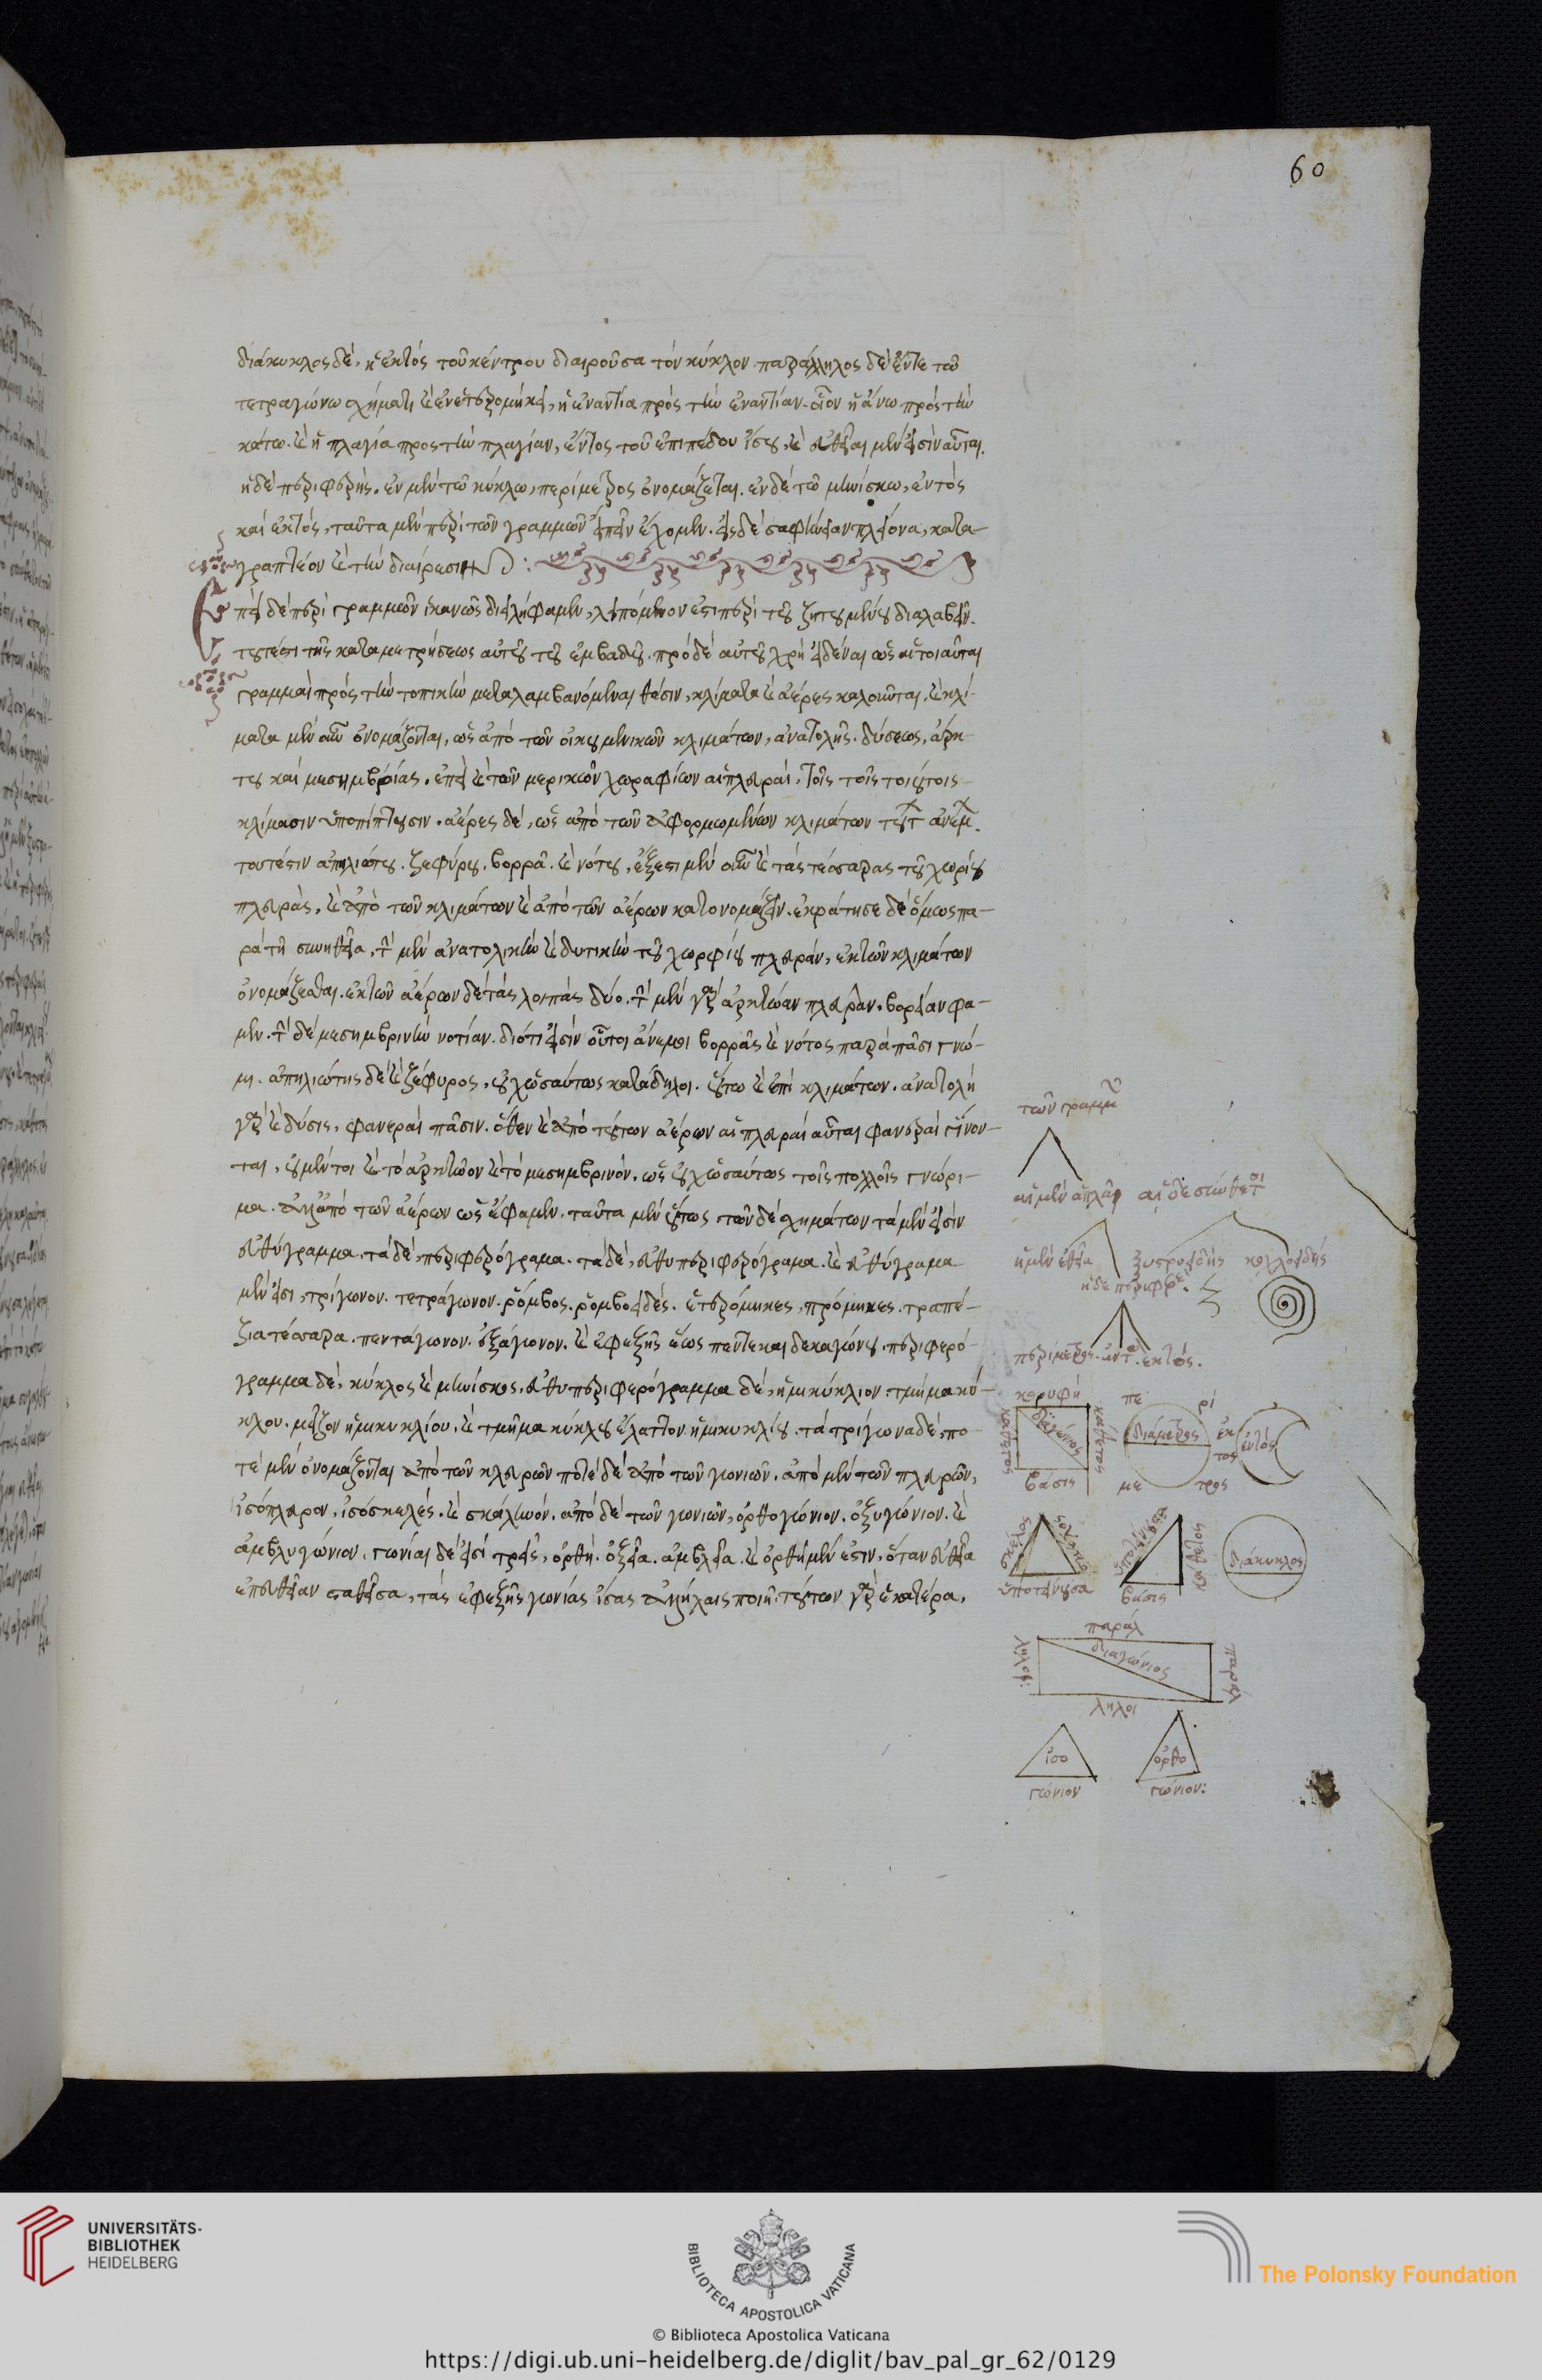 60
διάκυκλος δέ, ἡ ἐκτός τοῦ κέντρου διαιροῦσα τόν κύκλον. παράλληλος δέ ἔντε τῶ
τετραγώνω σχήματι καὶ ἐν ἑτερομήκει, ἡ ἐναντία πρός τὴν ἐναντίαν. οἷον ἡ ἄνω πρός τὴν
κάτω. καὶ ἡ πλαγία προς τὴν πλαγίαν, ἐντος τοῦ ἐπιπέδου ἴσου, καὶ εὐθεῖαι μὲν εἰσὶν αὗται.
ἡ δέ περιφερής. ἐν μὲν τῶ κύκλω, περίμετρος ὀνομάζεται. ἐν δέ τῶ μηνίσκω, ἐντός
καί ἐκτός, ταῦτα μὲν περί τῶν γραμμῶν εἰπεῖν ἔχομεν. εἰς δέ σαφήνειαν πλείονα, κατα-
γραπτέον καὶ τὴν διαίρεσιν:
Ἐπεί δέ περί γραμμῶν ἱκανῶς διειλήφαμεν, λειπόμενον ἐστι περί τοῦ ζητουμένου διαλαβεῖν.
τουτέστι τῆς καταμετρήσεως αὐτοῦ τοῦ ἐμβαδοῦ. πρό δέ αὐτοῦ χρή εἰδέναι ὡς αἱ τοιαῦται
γραμμαί πρός τὴν τοπικὴν μεταλαμβανόμεναι θέσιν, κλίματα καὶ ἀέρες καλοῦνται, καὶ κλί-
ματα μὲν οὖν ὀνομάζονται, ὡς ἀπό τῶν οἰκουμενικῶν κλιμάτων, ἀνατολῆς. δύσεως, ἄρκ-
του καί μεσημβρίας. ἐπεί καὶ τῶν μερικῶν χωραφίων αἱ πλευραί, τοῖς τοῖς τοιούτοις
κλίμασιν ὑποπίπτουσιν. ἀέρες δέ, ὡς ἀπό τῶν ἀφορμωμένων κλιμάτων τουτ ἀνέμ.
τουτέστιν ἀπηλιώτου. ζεφύρου. βορρᾶ. καὶ νότου, ἔξεστι μὲν οὖν καὶ τάς τέσσαρας τοῦ χωρίου
πλευράς, καὶ ἀπό τῶν κλιμάτων καὶ ἀπό τῶν ἀέρων κατονομάζειν. ἐκράτησε δέ ὅμως πα-
ρά τῆ συνηθεία, τὴν μὲν ἀνατολικὴν καὶ δυτικὴν τοῦ χωραφίου πλευράν, ἐκ τῶν κλιμάτων
ὀνομάζεσθαι. ἐκ τῶν ἀέρων δέ τάς λοιπάς δύο. τὴν μὲν γὰρ ἀρκτώαν πλευράν. βορείαν φα-
μεν. τὴν δέ μεσημβρινὴν νοτίαν. διότι εἰσίν οὗτοι ἄνεμοι βορρᾶς καὶ νότος παρά πᾶσι γνώ-
μη. ἀπηλιώτης δέ καὶ ζέφυρος, οὐχ ὡσαύτως κατάδηλοι. οὕτω καὶ ἐπί κλιμάτων. ἀνατολή
γὰρ καὶ δύσις, φανεραί πᾶσιν. ὅθεν καὶ ἀπό τούτων ἀέρων αἱ πλευραί αὗται φανεραί γίνον-
ται, οὐ μέντοι καὶ τό ἀρκτῶον καὶ τό μεσημβρινόν. ὡς οὐχ ὡσαύτως τοῖς πολλοῖς γνώρι-
μα. ἀλλ' ἀπό τῶν ἀέρων ὡς ἔφαμεν. ταῦτα μὲν οὕτως. τῶν δέ σχημάτων τά μὲν εἰσίν
εὐθύγραμμα. τά δέ, περιφερόγραμα. τά δέ, εὐθυπεριφερόγραμα. καὶ εὐθύγραμα
μὲν εἰσι, τρίγωνον. τετράγωνον. ῥόμβος. ῥομβοειδές. ἑτερόμηκες, πρόμηκες. τραπέ-
ζια τέσσαρα. πεντάγωνον. ἑξάγωνον. καὶ ἐφεξῆς ἕως πεντεκαιδεκαγώνου. περιφερό-
γραμμα δέ, κύκλος καὶ μηνίσκος. εὐθυπεριφερόγραμμα δέ, ἡμικύκλιον. τμῆμα κύ-
κλου. μεῖζον ἡμικυκλίου. καὶ τμῆμα κύκλου ἔλαττον ἡμικυκλίου. τά τρίγωνα δέ, πο-
τέ μὲν ὀνομάζονται ἀπό τῶν πλευρῶν ποτέ δέ ἀπό τῶν γωνιῶν. ἀπό μὲν τῶν πλευρῶν,
ἰσόπλευρον, ἰσόσκελές. καὶ σκαληνόν. ἀπό δέ τῶν γωνιῶν, ὀρθογώνιον. ὀξυγώνιον. καὶ
ἀμβλυγώνιον. γωνίαι δέ εἰσί τρεῖς, ὀρθή. ὀξεῖα. ἀμβλεῖα. καὶ ὀρθή μὲν ἐστιν, ὅταν εὐθεῖα
ἐπ' εὐθεῖαν σταθεῖσα, τάς ἐφεξῆς γωνίας ἴσας ἀλλήλαις ποιῆ. τούτων γὰρ ἑκατέρα,
τῶν γραμμῶν
αἱ μὲν ἁπλαῖ αἱ δέ σύνθετοι
ἡ μὲν εὐθεῖα ξυστροειδής κοχλοειδής
ἡ δε περιφερ
περίμετρος. ἐντός. ἐκτός.
κορυφή
κάθετος
διαγώνιος
κάθετος
βάσις
πε ρί
διάμετρος
με τρος
ἐκ τος
ἐντός
σκέλος
σκέλος
ὑποτείνουσα
ὑποτείνουσα
κάθετος
βάσις
διάκυκλος
παράλ
διαγώνιος
ληλοι
παράλ
ληλοι
ἰσο
γώνιον
ὀρθο
γώνιον:
UNIVERSITÄTS-
BIBLIOTHEK
HEIDELBERG
BIBLIOTECA APOSTOLICA VATICANA
The Polonsky Foundation
© Biblioteca Apostolica Vaticana
https://digi.ub.uni-heidelberg.de/diglit/bav_pal_gr_62/0129